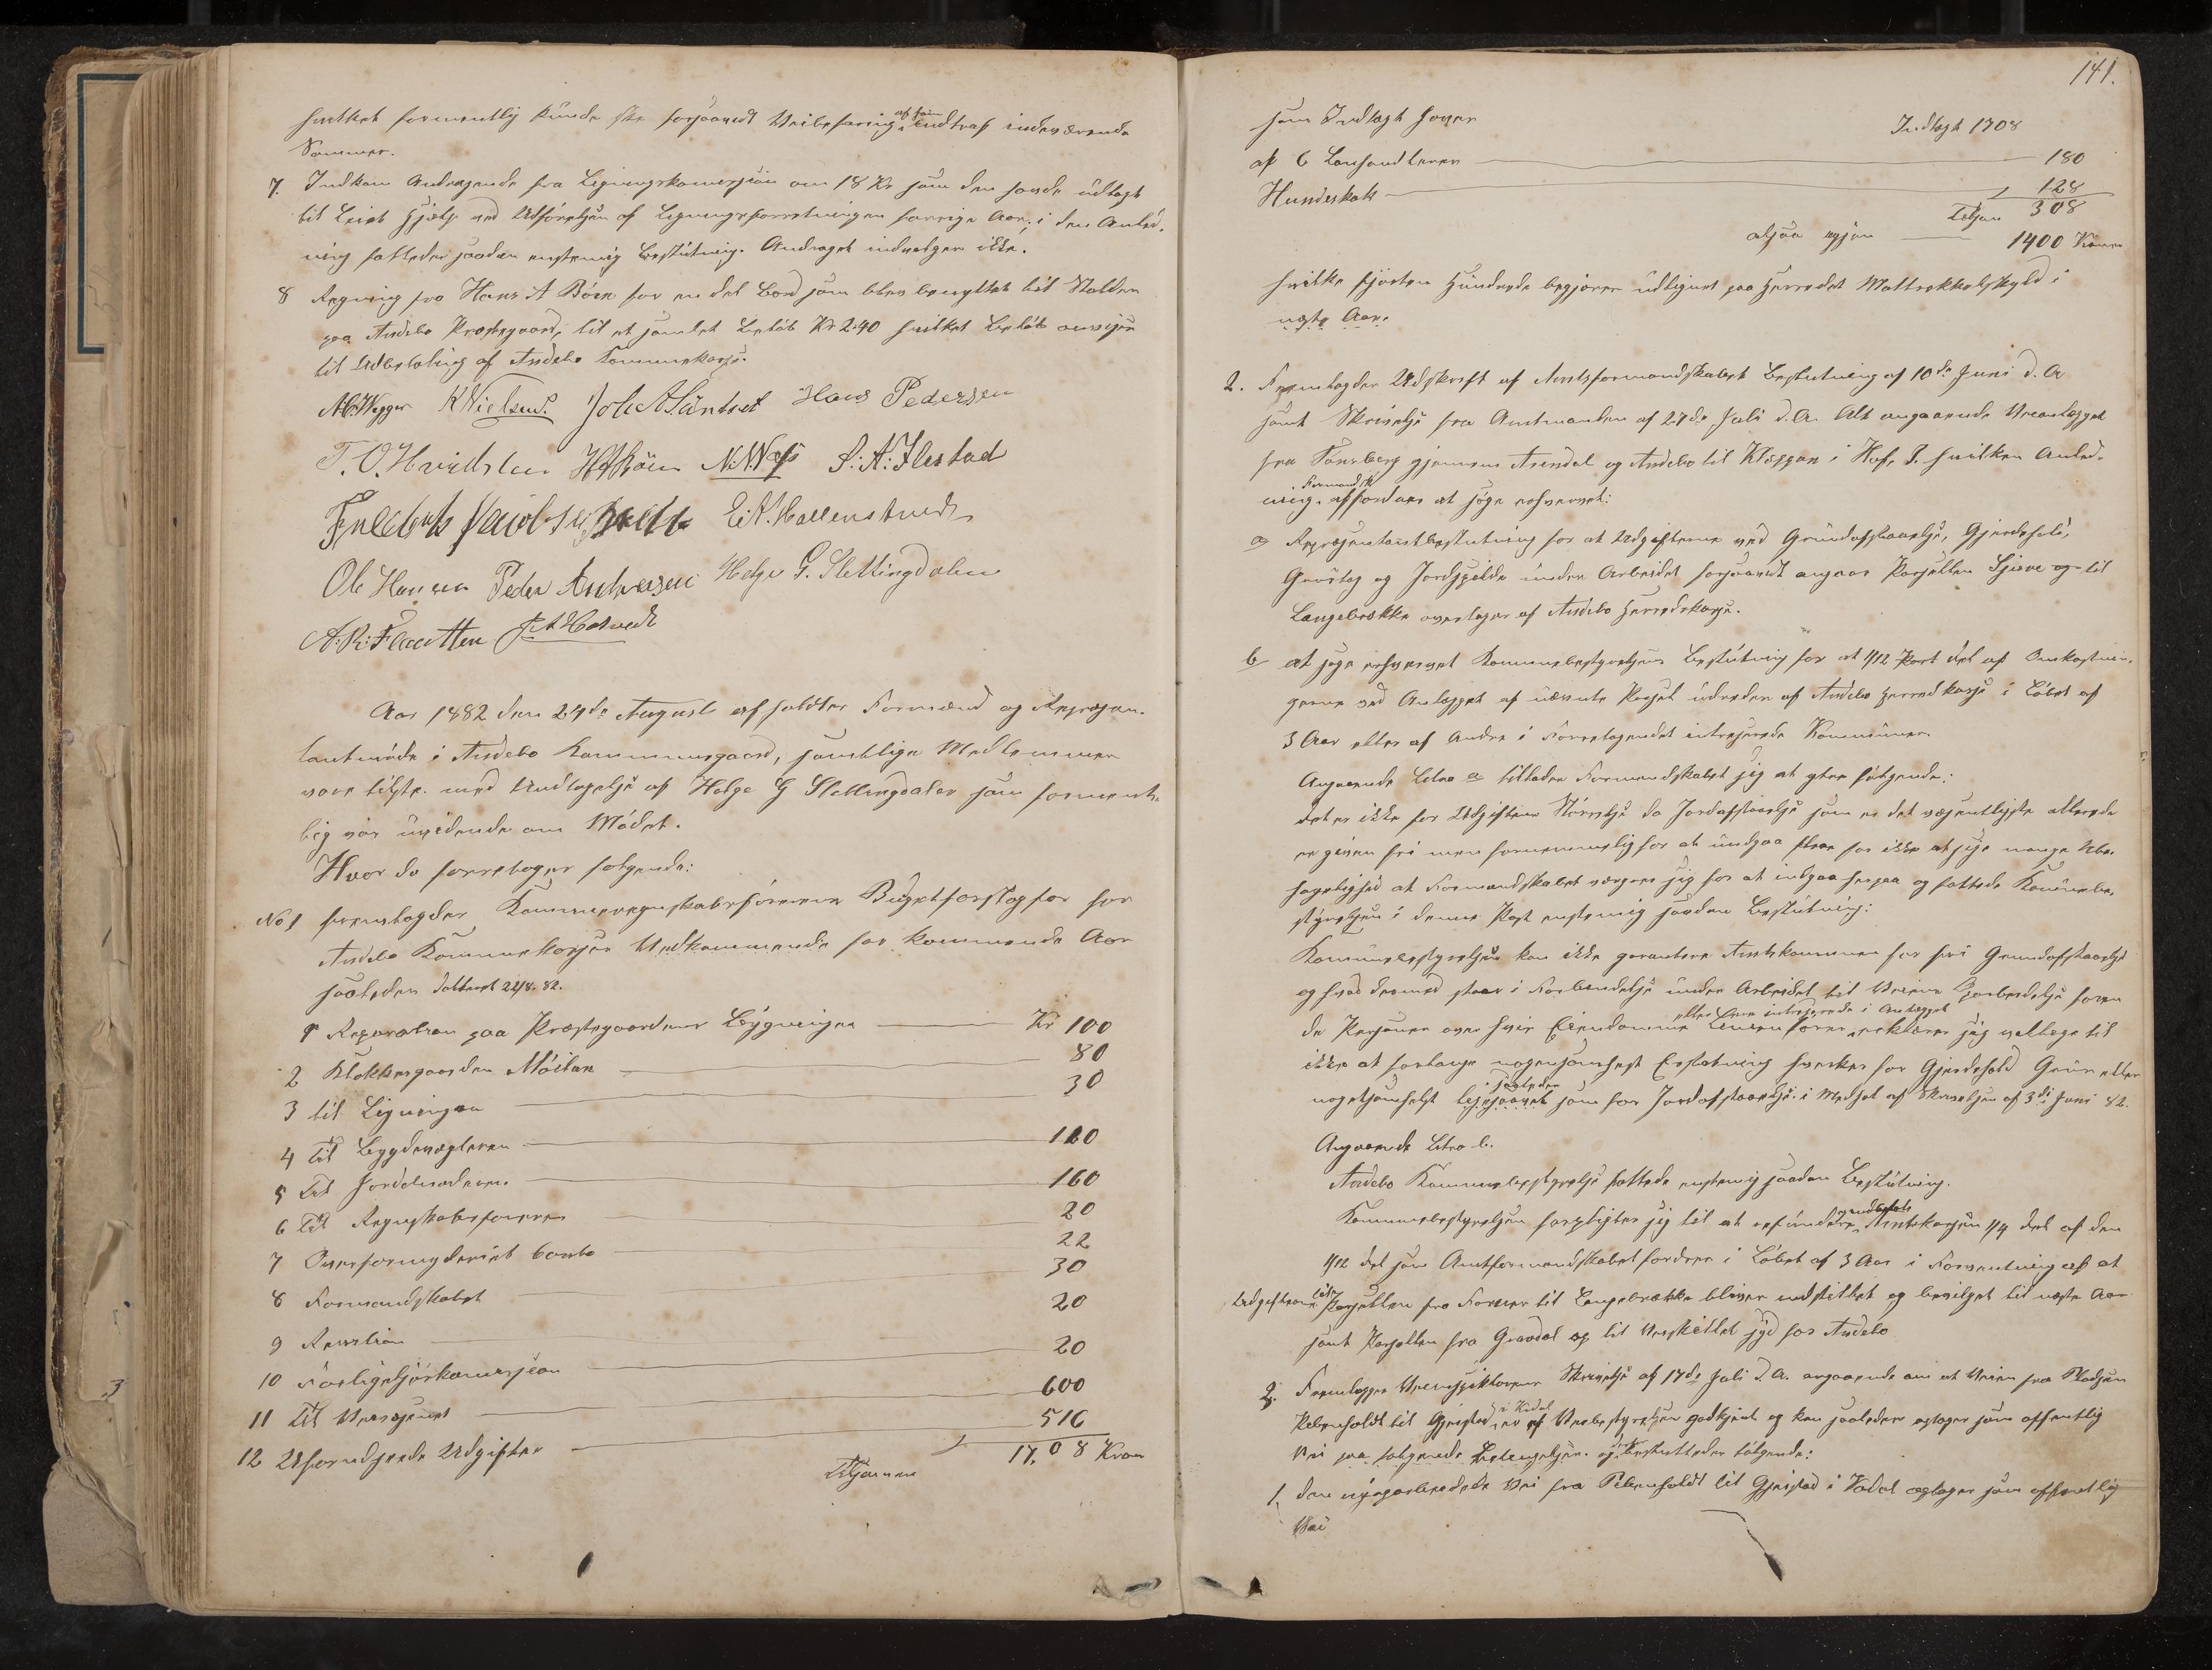 hvilket formentlig kunde ske forsaavidt Veibefaring af som indtraf indeværende
Sommer.
7. Indkom Andragende fra Ligningskommisjon om 18 Kr som den havde udlagt
til Leiet Hjælp ved Udførelsen af Ligningsforretningen forrige Aar; i den Anled-
ning fattedes saadan enstemig Beslutning. Andraget indvilges ikke.
8 Regning fra Hans A Böen for en del Bord som blev benyttet til Stalden
paa Andebo Præstegaard, til et samlet Beløb Kr 2.40 hvilket Beløb anvises
til Udbetaling af Andebo Kommunekasse.
K Nielsen. Joh A Säntset Hans Pedersen
T. O. Hvidsten H A Böen N. N. Vaaf S: A: Ilestad
E. A. Hallenstvedt
Ole Hansen Peder Andreasen Helge G. Slettingdalen
A. R: Flaatten
Aar 1882 den 24de August afholdtes Formænd og Repræsen-
tantmøde i Andebo Kommunegaard, samtlige Medlemmer
vare tilste. med Undtagelse af Helge G Slettingdalen som forment-
lig var uvidende om Mödet.
Hvor da foretoges folgende:
No 1 fremlagdes Kommuneregnskabsförerens Budgetforslag for
Andebo Kommunekasses Vedkommende for kommende Aar
saaledes datteret 22/8. 82.
1 Reparation paa Præstegaardens Bygninger Kr 100
2 Klokkergaarden Möilan 80
3 til Ligningen 30
4 Til Bygdevægteren 110
5 Til Jordemoderen 160
6 Til Regnskabsföreren 20
7 Overformynderiet Conto 22
8 Formandskabet 30
9 Revision 20
10 Forligelseskommisjon 20
11 Til Veivæsenet 600
12 Uforudseede Udgifter 516
Tilsammen 17,08 Kron
141.
som Indtægt haves Indtægt 1708
af 6 Lanhandlere 180
Hundeskat 128
Tilsam 308
altsaa igjen 1400 Kroner
hvilke fjorten Hundrede begjæres udlignet paa Herredet Mattrikkelskyld i
næste Aar.
2. Fremlagdes Udskrift af Amtsformandskabets Beslutning af 10de Juni d. A
samt Skrivelse fra Amtmanden af 27de Juli d. A. Alt angaaende Veianlægget
fra Tönsberg gjennem Arendal og Andebo til Kleppan i Hof, I. hvilken Anled-
ning Formandsk. affordres at söge erhvervet:
a Repræsentantbeslutning for at Udgifterne ved Grundafstaaelse, Gjerdehold,
Grustag og Jordspilde under Arbeidet forsaavidt angaar Parsellen Sjuve og til
Langebrække overtages af Andebo Herredskasse.
b at söge erhvervet Kommunebestyrelsens Beslutning for at 1/12 Part del af Omkostnin-
gerne ved Anlægget af nævnte Parsel udredes af Andebo Herredskasse i Löbet af
3 Aar eller af Andre i Foretagendet intreserede Kommuner.
Angaaende Litra a tillader Formandskabet sig at ytre fölgende:
det er ikke for Udgifternes Störrelse da Jordafstaaelse som er det væsentligste allerede
er given fri men fornemmelig for at undgaa flere for ikke at sige mange Ube-
hagelighed at Formandskabet vægrer sig for at indgaa herpaa og fattede Kommunebe-
styrelsen i denne Post enstemig saadan Beslutning:
Kommunebestyrelsen kan ikke garantere Amtskommunen for fri Grundafstaaelse
og hvad dermed staar i Forbindelse under Arbeidet til Veiens Oparbeidelse foren
de Personer over hvis Eiendomme Linien förer eller ere intreserede i Anlægget erklærer sig villige til
ikke at forlange nogensomhelst Erstatning hverken for Gjerdehold Grus eller
nogetsomhelst saaledes som for Jordafstaaelse i Medhold af Skrivelsen af 3die Juni 82.
Angaaende Litra b.
Andebo Kommunebestyrelse fattede enstemig saadan Beslutning.
Kommunebestyrelsen forpligter sig til at refundere Amtskassen 1/4 del af den
1/12 del som Amtformandskabet fordrer i Löbet af 3 Aar i Forventning af at
Udgifterne til Parsellen fra Forver til Langebrække bliver indstillet og bevilget til næste Aar
samt Parsellen fra Gravdal og til Veiskillet syd for Andebo
3. Fremlagdes Veiinspektörens Skrivelse af 17de Juli d. A. angaaende om at Veien fra Pladsen
Pebenholdt til Gjeistad i Kodal er af Veibestyrelsen godkjent og kan saaledes optages som offentlig
Vei paa folgende Betingelser. og besluttedes fölgende:
1. den nyoparbeidede Vei fra Pebenholdt til Gjeistad i Kodal optages som offentlig
Vei